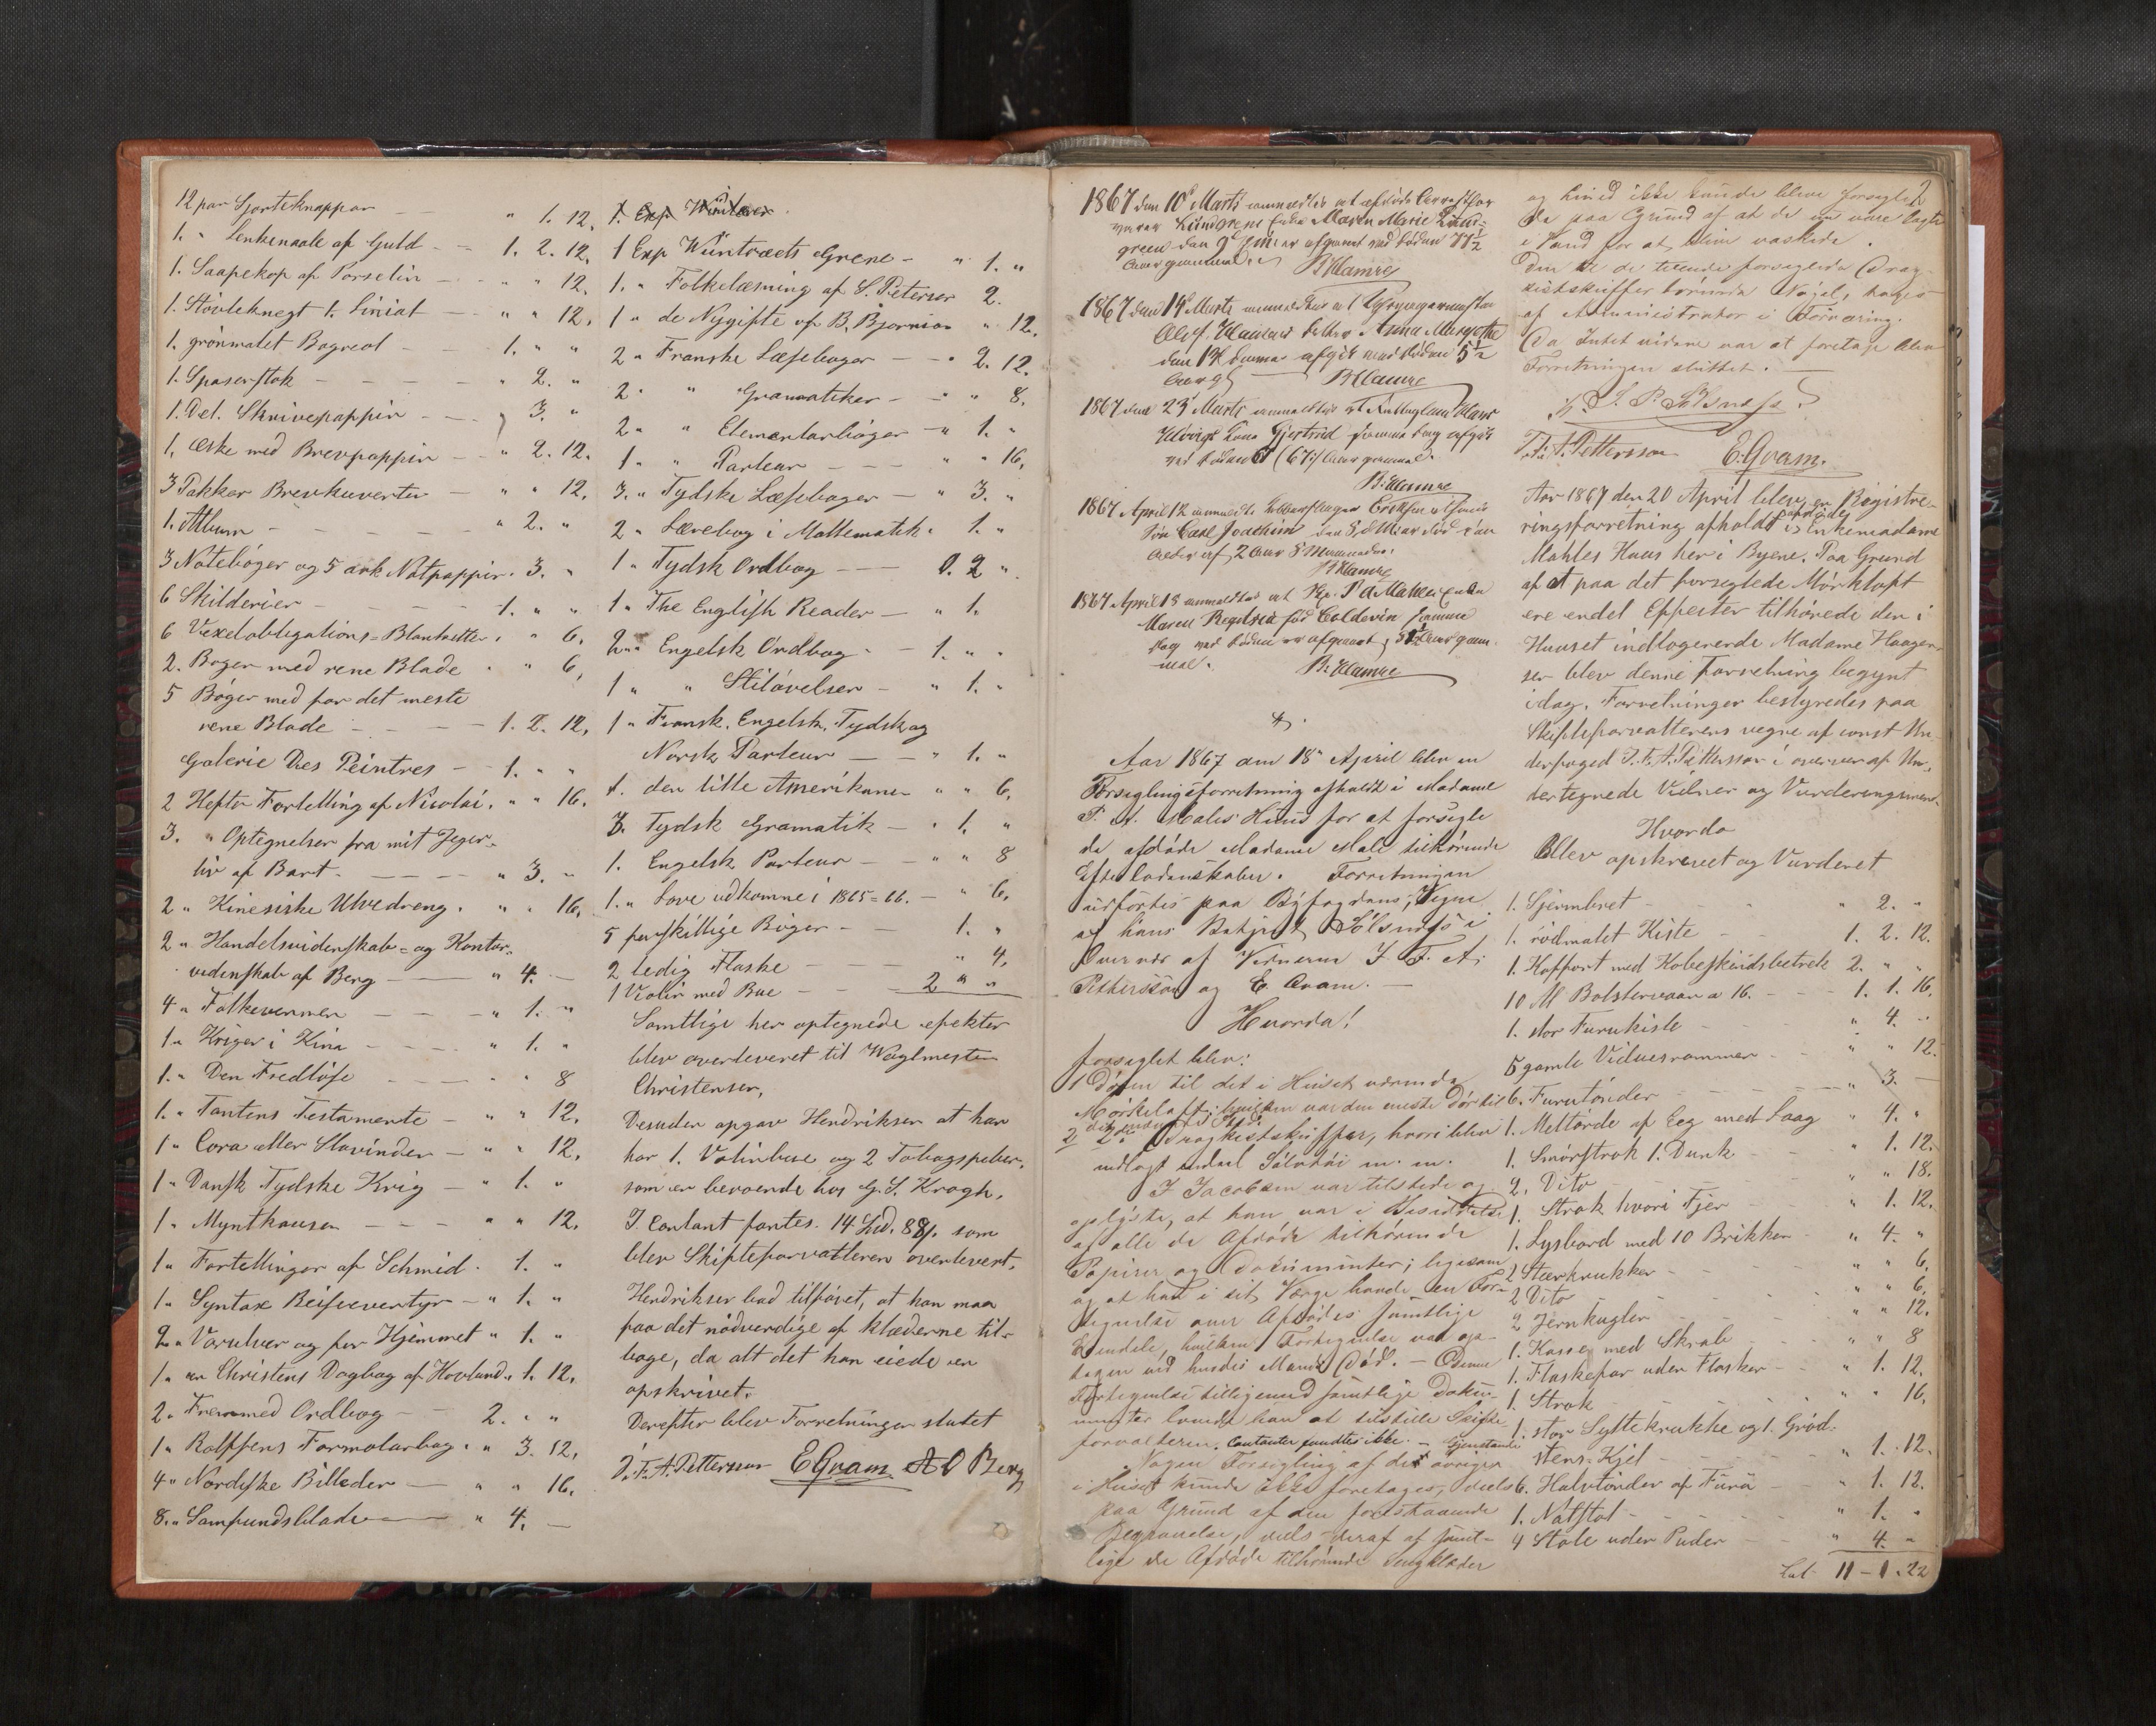 12 par Sjorteknapper — " 1. 12.
1. " Lenkenaale af Guld — 1. 2. 12.
1. Saapekop af Porselin — " " 12.
1. Stövleknegt 1. Linial — " " 12.
1. grönmalet Bogreol — 1. " "
1. Spaserstok — " 2. "
1. Del. Skrivepappir — 3. "
1. Æske med Brevpappir — " 2. 12.
3 Pakker Brevkuverter — " " 12.
1. Album — " 2. "
3 Notebøger og 5 ark Notpappir. 3. "
6 Skilderier — 1. " "
6 Vexelobligations-Blanketter. " 6.
2. Bøger med rene Blade " " 6,
5 Bøger med for det meste
rene Blade — 1. 2. 12,
Galerie Des Peintres — 1. " "
2 Hefter Fortelling af Nicolai. " " 16.
3. " Optegnelser fra mit Jeger-
liv af Bart. — " 3. "
2 " Kinesiske Utvedreng. " " 16.
2 " Handelsvidenskab- og Kontor-
videnskab af Berg — " 4. —
4 " Folkevennen — " 1. "
1 " Kriger i Kina — " 1. "
1. " Den Fredlöse — " " 8
1. " Tantens Testamente — " " 12.
1 " Cora eller Slavinden — " " 12.
1 " Dansk Tydske Krig — " 1. "
1 " Mynthausen — " " 12.
1 " Fortellinger af Schmid. 1. "
1 " Syntax Reiseeventyr — " 1. "
2 " Varulven og fra Hjemmet " 1. "
1 " en Christens Dagbog af Hovlund. 1. 12.
2 " Fremmed Ordbog — 2. " "
1 " Rolffsens Formularbog. " 3. 12.
4 " Nordiske Billeder — " " 16.
8. " Samfundsblade — " 4. —
1. Exp Wintræet
1 Exp Wüntræets Grene — " 1. "
1. " Folkelæsning af S. Petersen 2.
1 " de Nygifte af B. Bjørnson " 12.
2 " Franske Læsebøger — " 2. 12.
2 " " Gramatiker — " " 8.
2 " " Elementarbøger — " 1. "
1 " " Parleur — " " 16.
3. " Tydske Læsebøger — " 3. "
2 " Lærebog i Mattematik. 1. "
1 " Tydsk Ordbog — 0. 2 "
1 " The English Reader — " 1.
2 " Engelsk Ordbog — 1. " "
1 " " Stilövelser — " 1. "
1 " Fransk, Engelsk, Tydsk og
Norsk Parleur — " 1. "
1. den lille Amerikaner " " 6.
3. Tydsk Gramatik — " 1. "
1. Engelsk Parleur — " " 8
1. " Love udkomne i 1865-66. — " 6.
5 forskillige Bøger — 1. "
2 ledig Flaske — " 4.
1 Violin med Bue — 2 " "
Samtlige her optegnede efekter
blev overleveret til Vagtmester
Christensen,
Desuden opgav Hendriksen at han
har 1. Violinbue og 2 Tobagspiber,
som er beroende hos G. S. Krogh.
I Contant fantes. 14 Spd. 88 s. som
blev Skifteforvalteren overlevert.
Hendriksen bad tilføiet, at han maa
faa det nödverdige af klæderne til-
bage, da alt det han eiede er
opskrivet.
Derefter blev Forretningen slutet
J. F. A. Pettersson E Gram A O Berg
1867 den 10d Marts anmeldtes at afdøde
Lundgrens Enke Maren Marie Lund-
green den 9d er afgaaet ved döden 77½
Aar gammel. B. Hamre
1867 den 19d Marts anmeldtes at
datter Anna Margrethe
den 18d afgik ved döden 5½
Aar gl. B Hamre
1867 den 23d Marts anmeldtes at
Kone Gjertrud samme dag afgik
ved döden (67) Aar gammel.
B. Hamre
1867 April 12 anmeldte
Sön Carl Joachim den 8d död i en
Alder af 2 Aar 8 Maaneder.
B Hamre
1867 April 13 anmeldtes at P A Mahles Enke
Maren Regitsia föd Coldevin samme
dag ved döden er afgaaet, Aar gam-
mel. B. Hamre
Aar 1867 den 18de April blev en
Forseglingsforretning afholdt i Madame
P. A. Males Huus for at forsegle
de afdöde Madame Male tilhörende
Efterladenskaber. Forretningen
udfortes paa Byfogdens Vegne
af hans Betjent Sölsnæs i
Overvær af Vidnerne J. F. A.
Pettersson og E. Gram. —
Hvorda!
forseglet blev:
1 Dören til det i Huset værende
Mörkeloft, hvilken var den eneste Dör til
2. 2de Dragkisteskuffer, hvori blev
indlagt endeel Sölvtöi m. m.
J Jacobsen var tilstede og
oplyste, at han var i Besiddelse
af alle de Afdöde tilhörende
Papirer og Documenter, ligesom
og at han i sit Værge havde en For-
tegnelse over Afdödes samtlige
Eiendele, hvilken Fortegnelse var op-
tagen ved hendes Mands Död. — Denne
Fortegnelse tilligemed samtlige Doku-
menter lovede han at tilstille Skifte-
forvalteren. Contanter fandtes ikke. —
Nogen Forsegling af de övrige Gjenstande
i Huset kunde ikke foretages, deels
paa Grund af den forestaaende
Begravelse, deels deraf at samt-
lige de Afdöde tilhörende Sengklæder
2
og Linned ikke kunde blive forseglede
paa Grund af at de var lagte
i Vand for at blive vaskede.
Den til de tvende forseglede Drag-
kisteskuffer hörende Nögel, toges
af Administrator i Forvaring.
Da Intet videre var at foretage blev
Forretningen sluttet.
J. P. Sölsnæss
J. F. A. Pettersson E. Gram.
Aar 1867 den 20 April blev en Registre-
ringsforretning afholdt i afdöde Enkemadame
Mahles Huus her i Byene. Paa Grund
af at paa det forseglede Mörkloft
ere endel Effecter tilhörede den i
Huuset indlogerende Madame Haagen-
sen blev denne forretning begynt
idag. Forretningen bestyredes paa
Skifteforvalterens vegne af const Un-
derfoged J. F. A. Pettersson i overvær af Un-
dertegnede Vidner og Vurderingsmænd.
Hvorda
Blev opskrevet og Vurderet
1. Sjermbret — " 2. "
1. rödmalet Kiste — 1. 2. 12.
1. Koffort med Kobeskindsbetrek 2. " "
10 Al Bolstervaar a 16. — 1. 1. 16.
1. stor Furukiste — " 4. "
5 gamle Vinduesrammer — " " 12.
6. Furutönder — " 3. —
1. Meltönde af Eeg med Laag " 4. "
1. Smörstrok 1. Dunk — " 1. 12.
2. Dito — " " 18.
1. Strok hvori Fjer — " 1. 12.
1. Lysbord med 10 Brikker — " 4. "
2 Steenkrukker — " " 6.
2 Dito — " " 6.
2 Jernkugler — " " 12.
1. Kasse med Skrab — " " 8
1. Flaskefor uden Flasker — " 1. 12.
1. Strok — " " 16.
1. stor Syltekrukke og 1. Gröd-
stens-Kjel — " 1. 12.
6. Halvtönder af Furu — " 1. 12.
1. Natstol — " 1. "
4 Stole uden Puder — " 4. "
Lat 11 - 1. 22